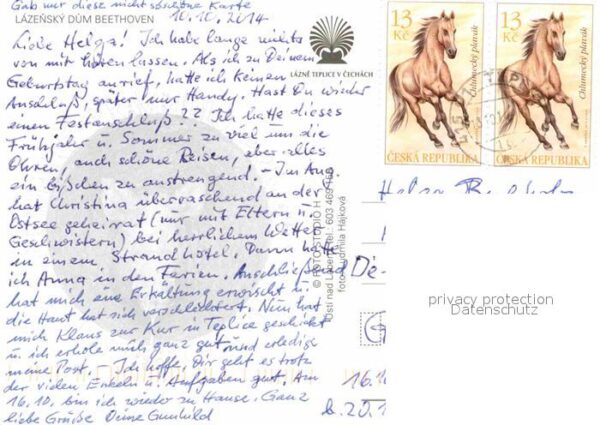 Gab nur diese nicht schöne Karte
LÁZEŇSKÝ DŮM BEETHOVEN
10.10.2014
Liebe Helga! Ich habe lange nichts
von mir hören lassen. Als ich zu Deinem
Geburtstag anrief, hatte ich keinen
Anschluß, später nur Handy. Hast Du wieder
einen Festanschluß?? Ich hatte dieses
Frühjahr u. Sommer zu viel um die
Ohren, auch schöne Reisen, aber alles
ein bißchen zu anstrengend. - Im Aug.
hat Christina überraschend an der
Ostsee geheirat (nur mit Eltern u.
Geschwistern) bei herrlichem Wetter
in einem Strandhotel. Dann hatte
ich Anna in den Ferien. Anschließend
hat mich eine Erkältung erwischt u.
die Haut hat sich verschlechtert. Nun hat
mich Klaus zur Kur in Teplice geschickt
u. ich erhole mich ganz gut und erledige
meine Post. Ich hoffe, Dir geht es trotz
der vielen Enkeln u. Aufgaben gut. Am
16.10. bin ich wieder zu Hause. Ganz
liebe Grüße Deine Gunhild
LÁZNĚ TEPLICE V ČECHÁCH
© FOTO STUDIO H
Ústí nad Labem, tel.: 603 469
foto: Ludmila Hájková
13
Kč
Chlumecký plavák
ČESKÁ REPUBLIKA
13
Kč
Chlumecký plavák
ČESKÁ REPUBLIKA
De-
privacy protection
Datenschutz
16.1
b. 20.1